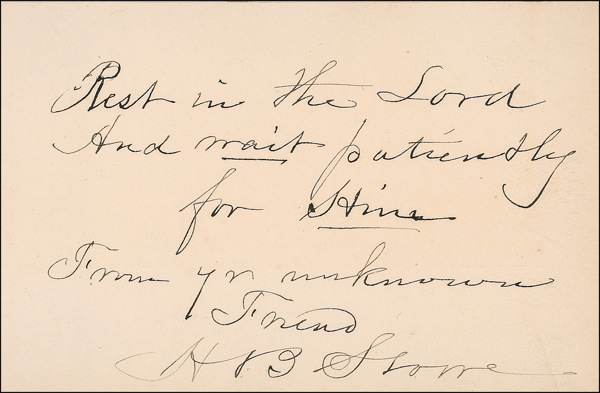 Rest in the Lord
And wait patiently
for Him
From yr unknown
Friend
H B Stowe